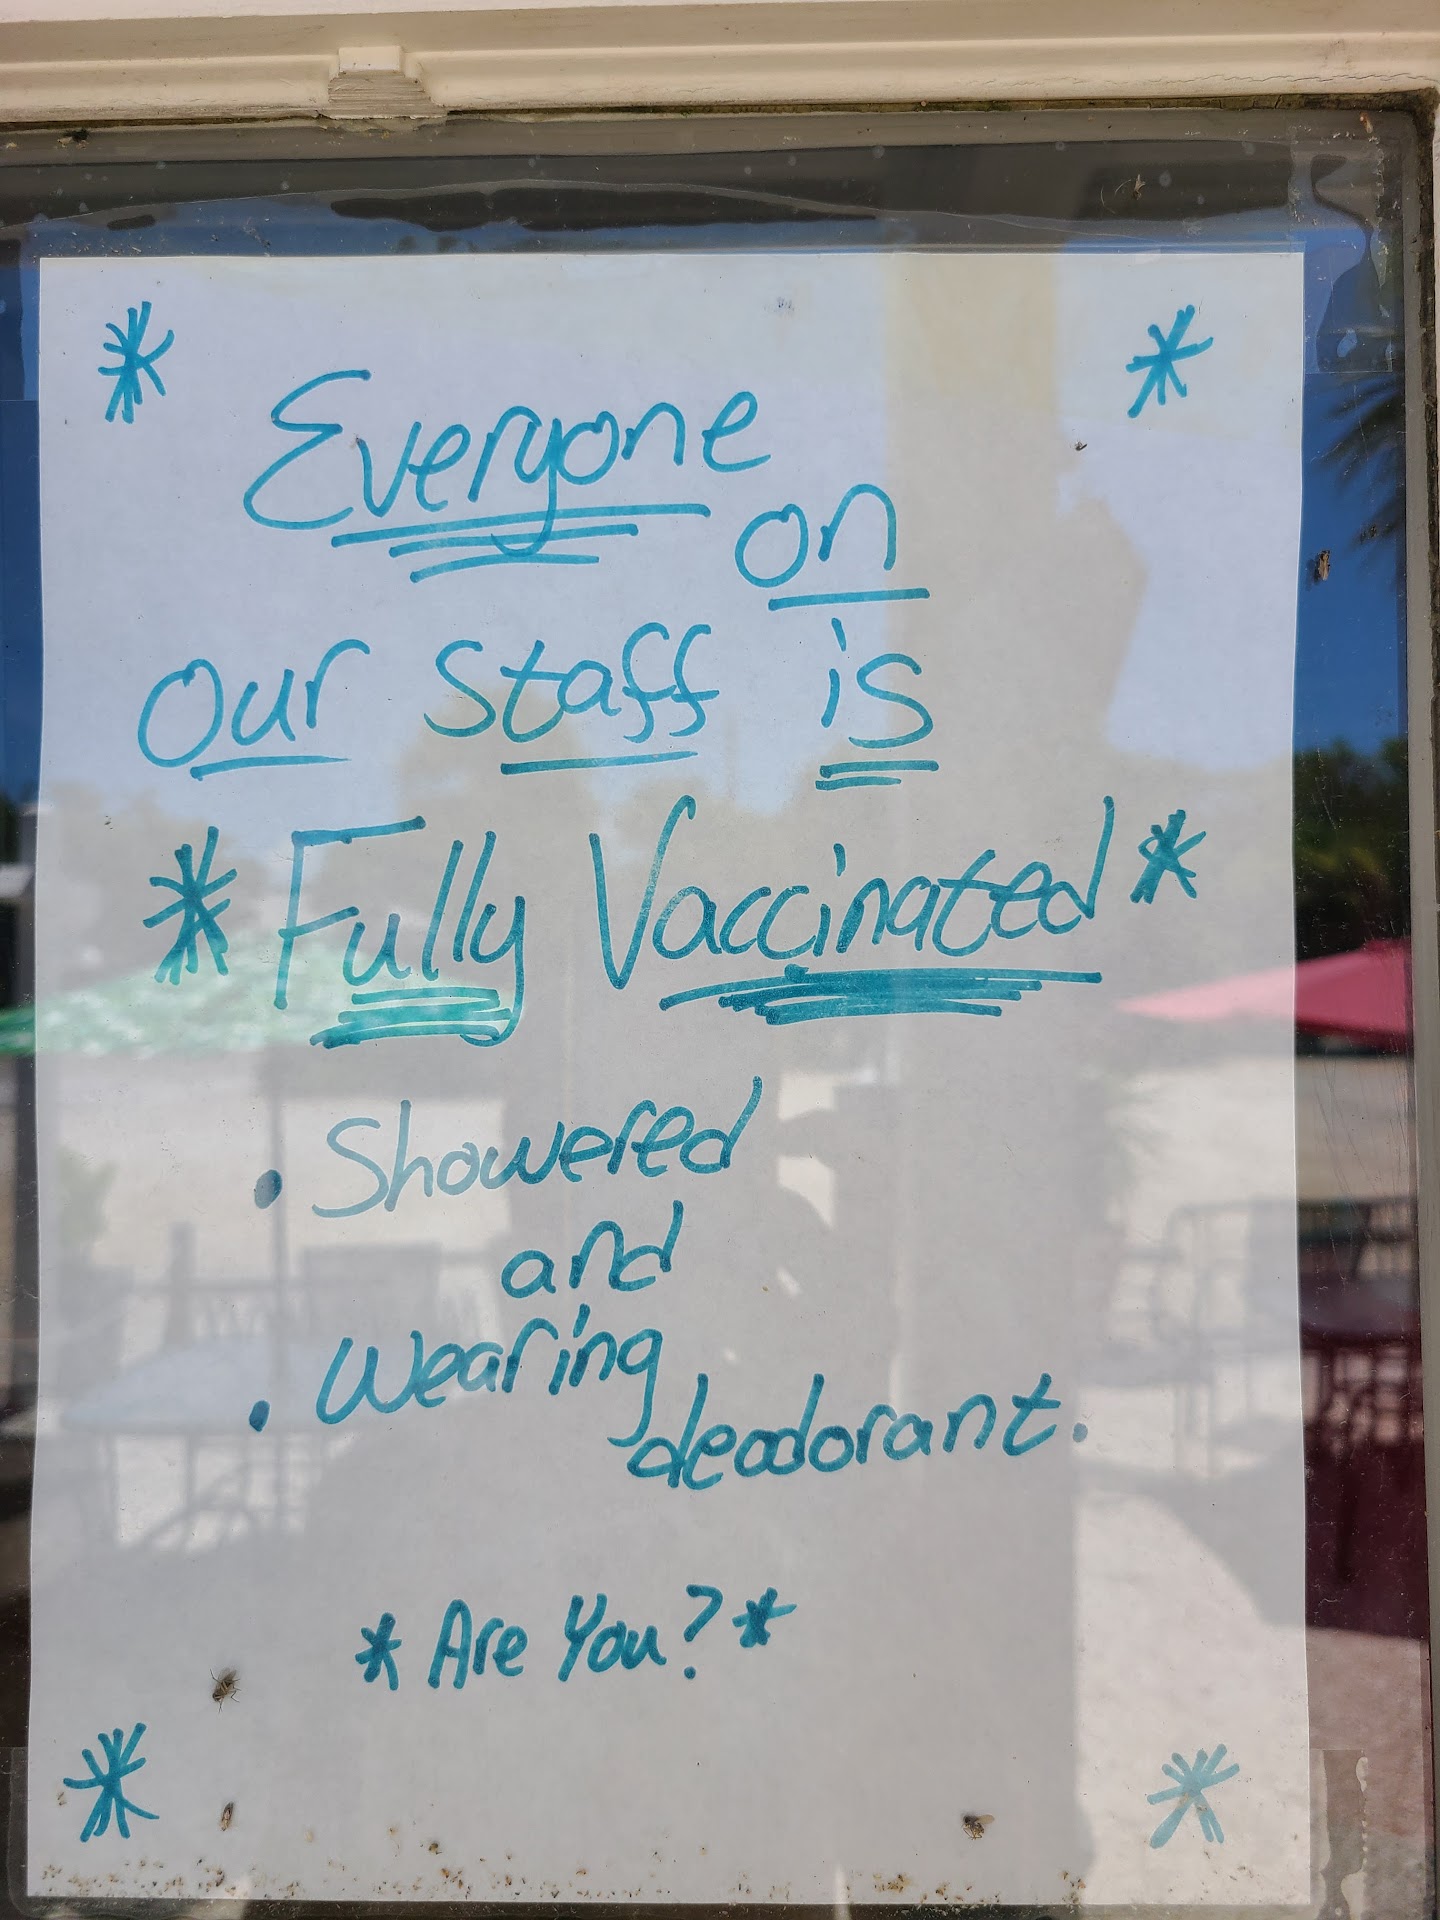 * *
Everyone on
our staff is
* Fully Vaccinated *
• Showered
and
• Wearing deodorant.
* Are You? *
* *